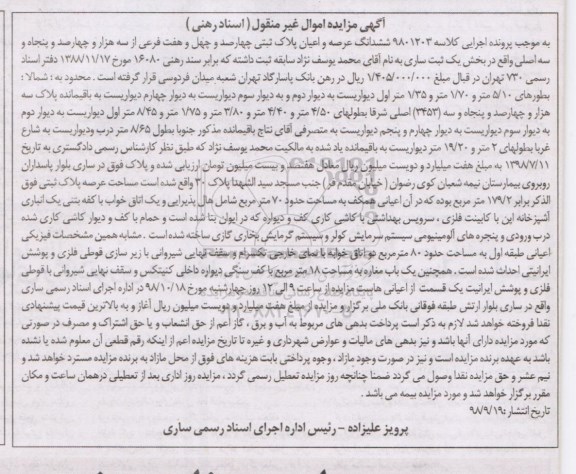 آگهی مزایده اموال غیر منقول ( اسناد رهنی )
به موجب پرونده اجرایی کلاسه ۹۸۰۱۲۰۳ ششدانگ عرصه و اعیان پلاک ثبتی چهارصد و چهل و هفت فرعی از سه هزار و چهارصد و پنجاه و
سه اصلی واقع در بخش یک ثبت ساری به نام آقای محمد یوسف نژاد سابقه ثبت داشته که برابر سند رهنی ۱۶۰۸۰ مورخ ۱۳۸۸/۱۱/۱۷ دفتر اسناد
رسمی ۷۳۰ تهران در قبال مبلغ ۱/۴۰۵/۰۰۰/۰۰۰ ریال در رهن بانک پاسارگاد تهران شعبه میدان فردوسی قرار گرفته است . محدود به : شمالا :
بطورهای ۵/۱۰ متر و ۱/۷۰ متر و ۱/۳۵ متر اول دیواریست به دیوار دوم و به دیوار سوم دیواریست به دیوار چهارم دیواریست به باقیمانده پلاک سه
هزار و چهارصد و پنجاه و سه (۳۴۵۳) اصلی شرقا بطولهای ۴/۵۰ متر و ۴/۴۰ متر و ۳/۸۰ متر و ۱/۷۵ متر و ۸/۴۵ متر اول دیواریست به دیوار دوم
به دیوار سوم دیواریست به دیوار چهارم و پنجم دیواریست به متصرفی آقای نتاج باقیمانده مذکور جنوبا بطول ۸/۶۵ متر درب ودیواریست به شارع
غربا بطولهای ۲ متر و ۱۹/۲۰ متر دیواریست به باقیمانده یاد شده به مالکیت محمد یوسف نژاد که طبق نظر کارشناس رسمی دادگستری به تاریخ
۱۳۹۸/۷/۱۱ به مبلغ هفت میلیارد و دویست میلیون ریال معادل هفتصد و بیست میلیون تومان ارزیابی شده و پلاک فوق در ساری بلوار پاسداران
روبروی بیمارستان نیمه شعبان کوی رضوان ( خیابان مقدم فر) جنب مسجد سید الشهدا پلاک ۳۰ واقع شده است مساحت عرصه پلاک ثبتی فوق
الذکر برابر ۱۷۹/۲ متر مربع بوده که در آن اعیانی همکف به مساحت حدود ۷۰ متر مربع شامل هال پذیرایی و یک اتاق خواب با کفه بتنی یک انباری
آشپزخانه اپن با کابینت فلزی ، سرویس بهداشتی با کاشی کاری کف و دیواره که در ایوان بنا شده است و حمام با کف و دیوار کاشی کاری شده
درب ورودی و پنجره های آلومینیومی سیستم سرمایش کولر و سیستم گرمایش بخاری گازی ساخته شده است . مشابه همین مشخصات فیزیکی
اعیانی طبقه اول به مساحت حدود ۸۰ مترمربع دو اتاق خوابه با نمای خارجی تگنرام و سقف نهایی شیروانی با زیر سازی قوطی فلزی و پوشش
ایرانیتی احداث شده است . همچنین یک باب مغازه به مساحت ۱۸ متر مربع با کف سنگی دیواره داخلی کنیتکس و سقف نهایی شیروانی با قوطی
فلزی و پوشش ایرانیت یک قسمت از اعیانی هاست مزایده از ساعت ۹ الی ۱۲ روز چهارشنبه مورخ ۹۸/۱۰/۱۸ در اداره اجرای اسناد رسمی ساری
واقع در ساری بلوار ارتش طبقه فوقانی بانک ملی برگزار و مزایده از مبلغ هفت میلیارد و دویست میلیون ریال آغاز و به بالاترین قیمت پیشنهادی
نقدا فروخته خواهد شد لازم به ذکر است پرداخت بدهی های مربوط به آب و برق ، گاز اعم از حق انشعاب و یا حق اشتراک و مصرف در صورتی
که مورد مزایده دارای آنها باشد و نیز بدهی های مالیات و عوارض شهرداری و غیره تا تاریخ مزایده اعم از اینکه رقم قطعی آن معلوم شده یا نشده
باشد به عهده برنده مزایده است و نیز در صورت وجود مازاد ، وجوه پرداختی بابت هزینه های فوق از محل مازاد به برنده مزایده مسترد خواهد شد و
نیم عشر و حق مزایده نقدا وصول می گردد ضمنا چنانچه روز مزایده تعطیل رسمی گردد ، مزایده روز اداری بعد از تعطیلی درهمان ساعت و مکان
مقرر برگزار خواهد شد و مورد مزایده بیمه می باشد .
تاریخ انتشار :۹۸/۹/۱۹
پرویز علیزاده - رئیس اداره اجرای اسناد رسمی ساری